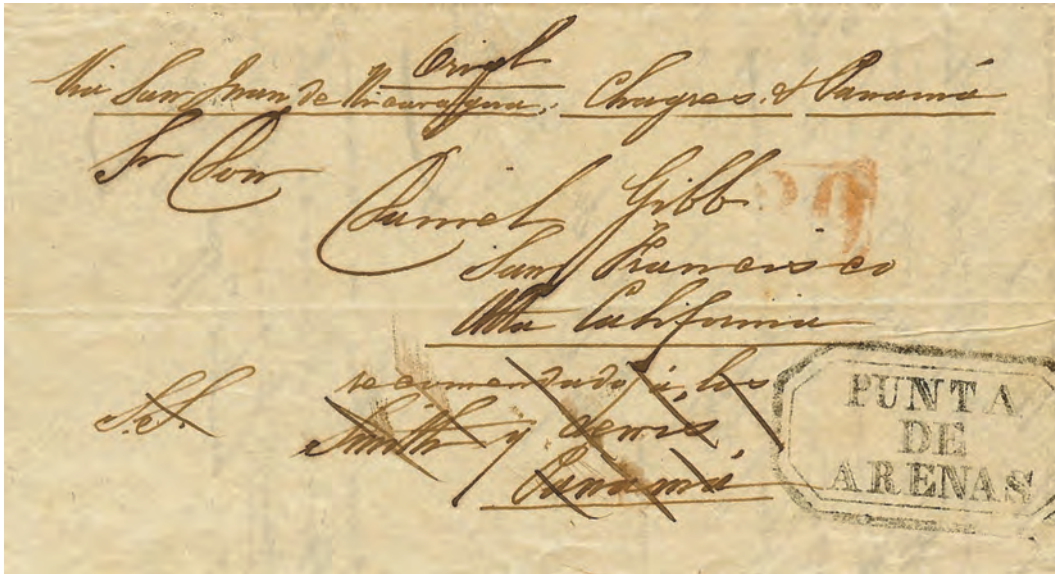 Origl
Via San Juan de Nicaragua, Chagres & Panamá
Sr Don
Daniel Gibb
San Francisco
Alta California
recomendado á los
S.S. Smith y
Panamá
PUNTA
DE
ARENAS